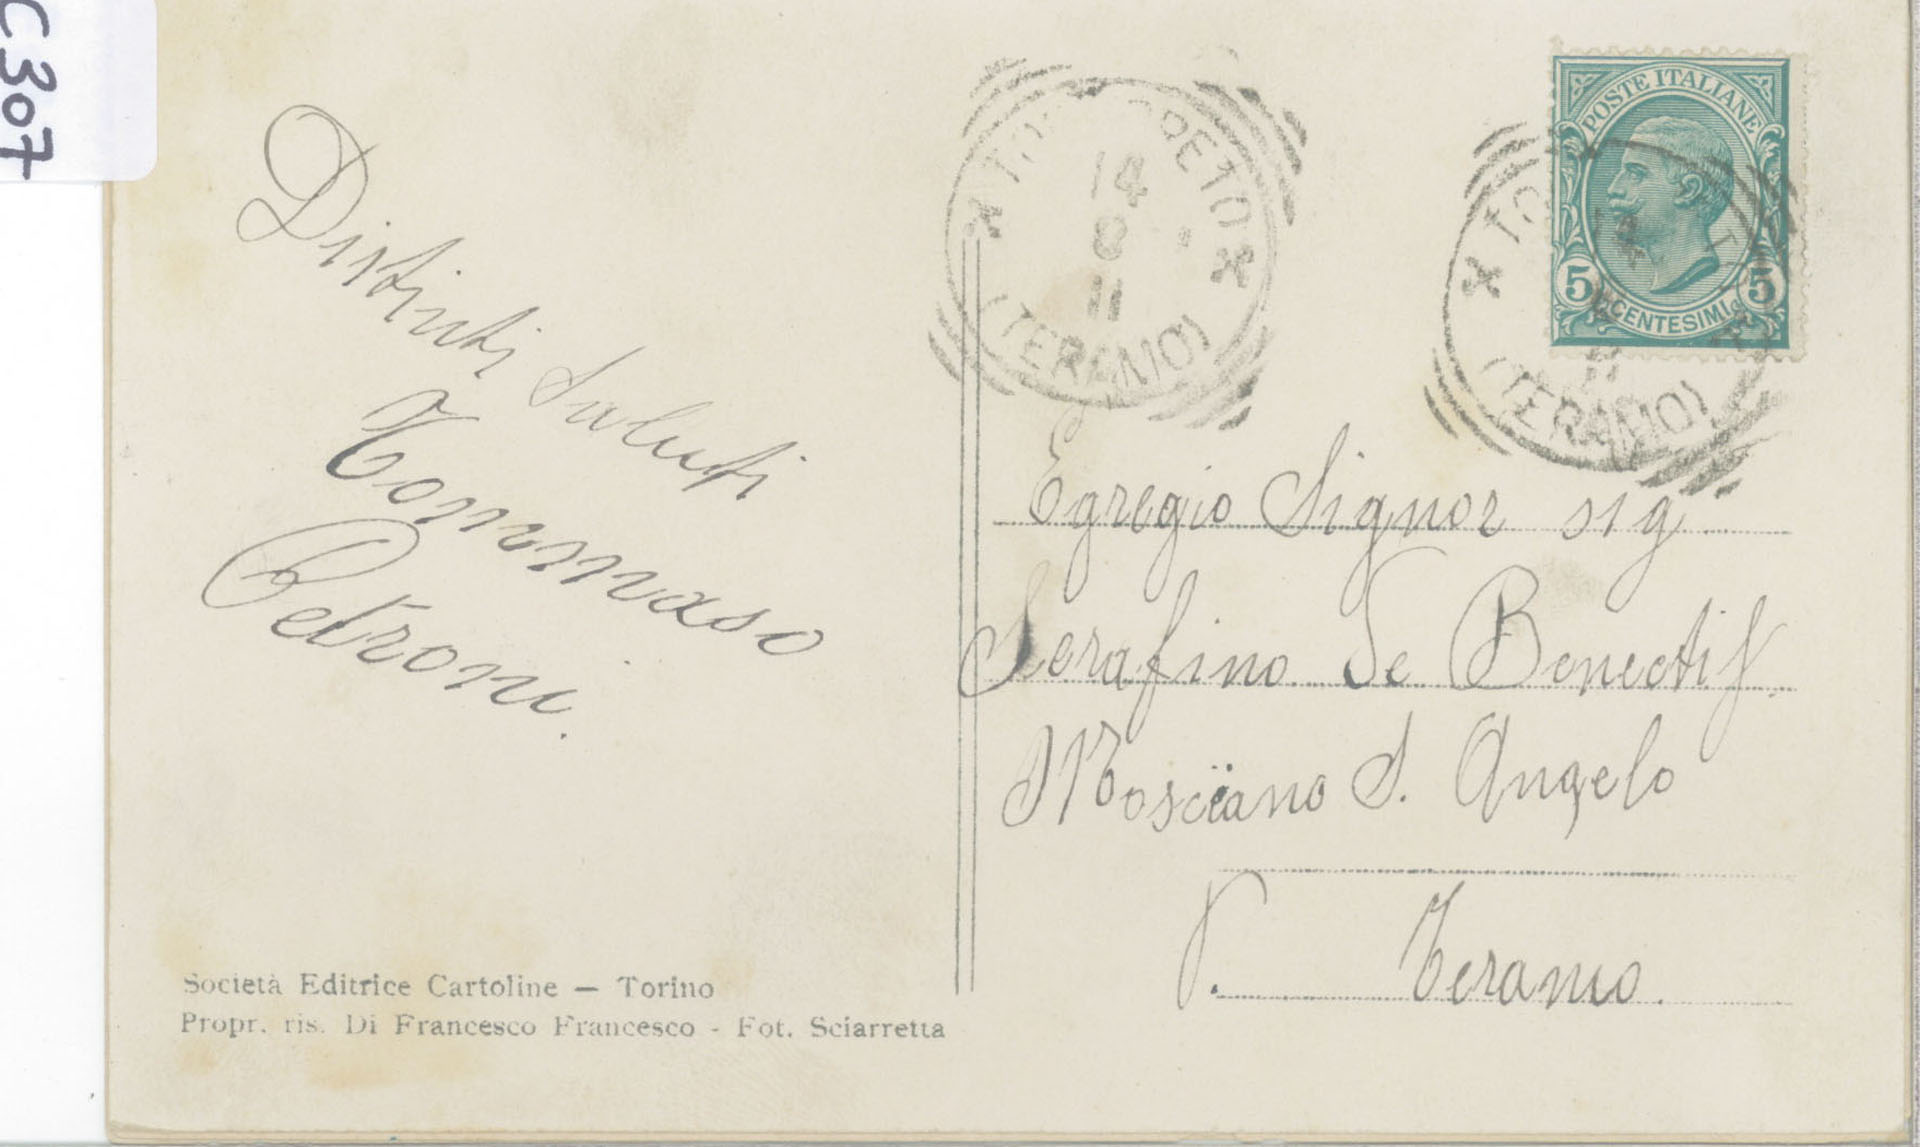 C307
Distinti Saluti
Tommaso
Petroni.
Società Editrice Cartoline — Torino
Propr. ris. Di Francesco Francesco - Fot. Sciarretta
14
8
11
(TERAMO)
POSTE ITALIANE
5 CENTESIMI 5
(TERAMO)
Egregio Signor sig
Serafino De
Mosciano S. Angelo
P. Teramo.